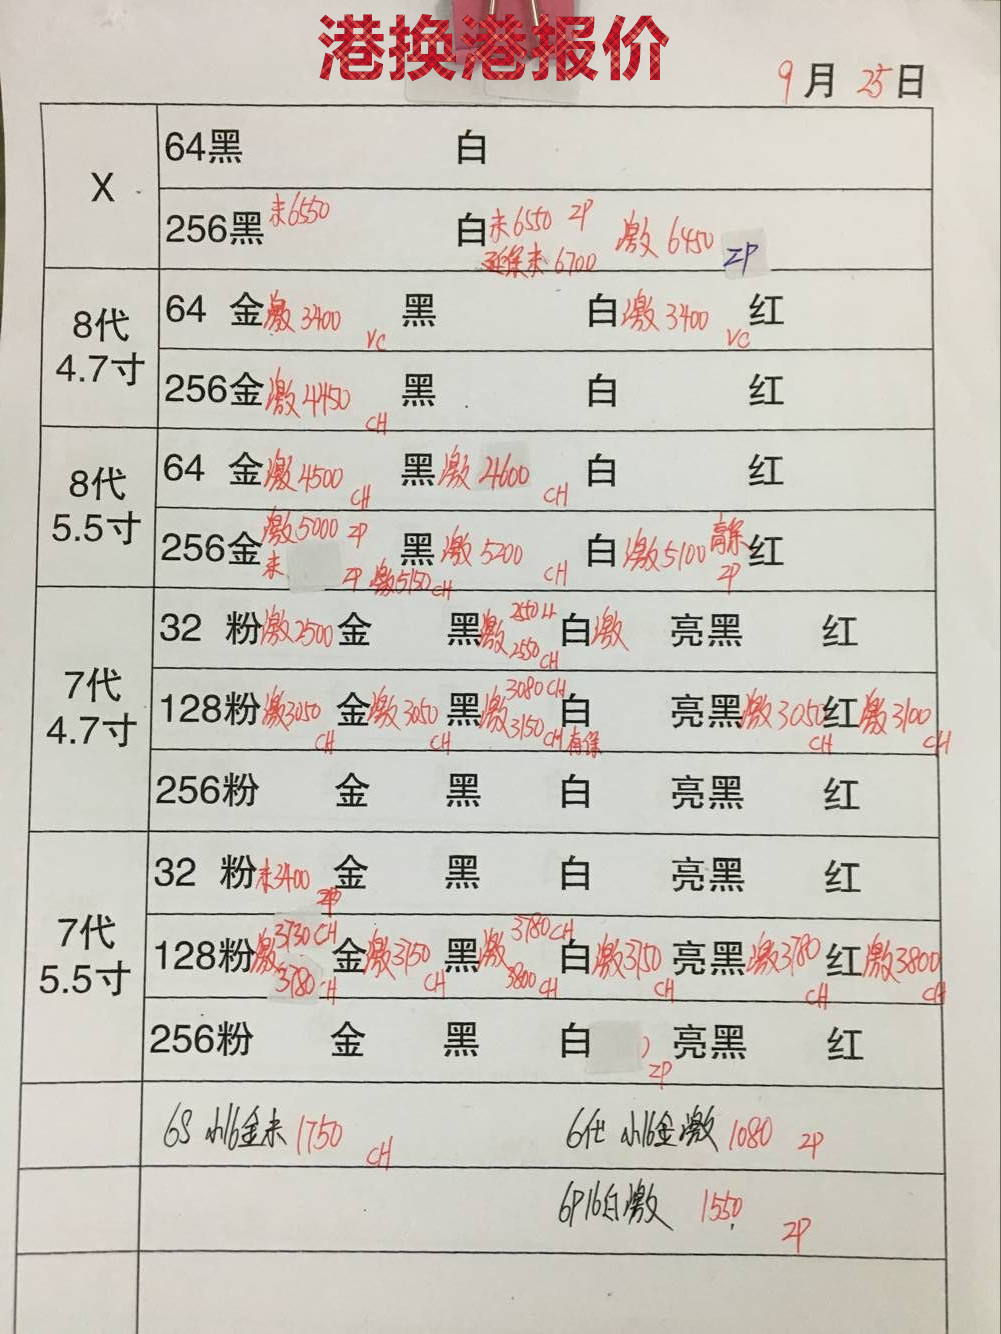 港换港报价
9月25日
X
64黑 白
256黑 未6550 白 未6550 ZP 激6450 ZP
延保未6700
8代
4.7寸
64 金 激3400 VC 黑 白 激3400 VC 红
256金 激4450 CH 黑 白 红
8代
5.5寸
64 金 激4500 CH 黑 激4600 CH 白 红
256金 激5000 ZP 黑 激5200 CH 白 激5100 ZP 红
未 ZP 激5150 CH
7代
4.7寸
32 粉 激2500 金 黑 激 2550 LL 2550 CH 白 激 亮黑 红
128粉 激3050 CH 金 激3050 CH 黑 激 3080 CH 3150 CH 有保 白 亮黑 激3050 CH 红 激3100 CH
256粉 金 黑 白 亮黑 红
7代
5.5寸
32 粉 未3400 ZP 金 黑 白 亮黑 红
128粉 激 3730 CH 3780 CH 金 激3750 CH 黑 激 3780 CH 3800 CH 白 激3750 CH 亮黑 激3780 CH 红 激3800 CH
256粉 金 黑 白 ZP 亮黑 红
6S 小16金未 1750 CH 6代 小16金激 1080 ZP
6P16白激 1550 ZP